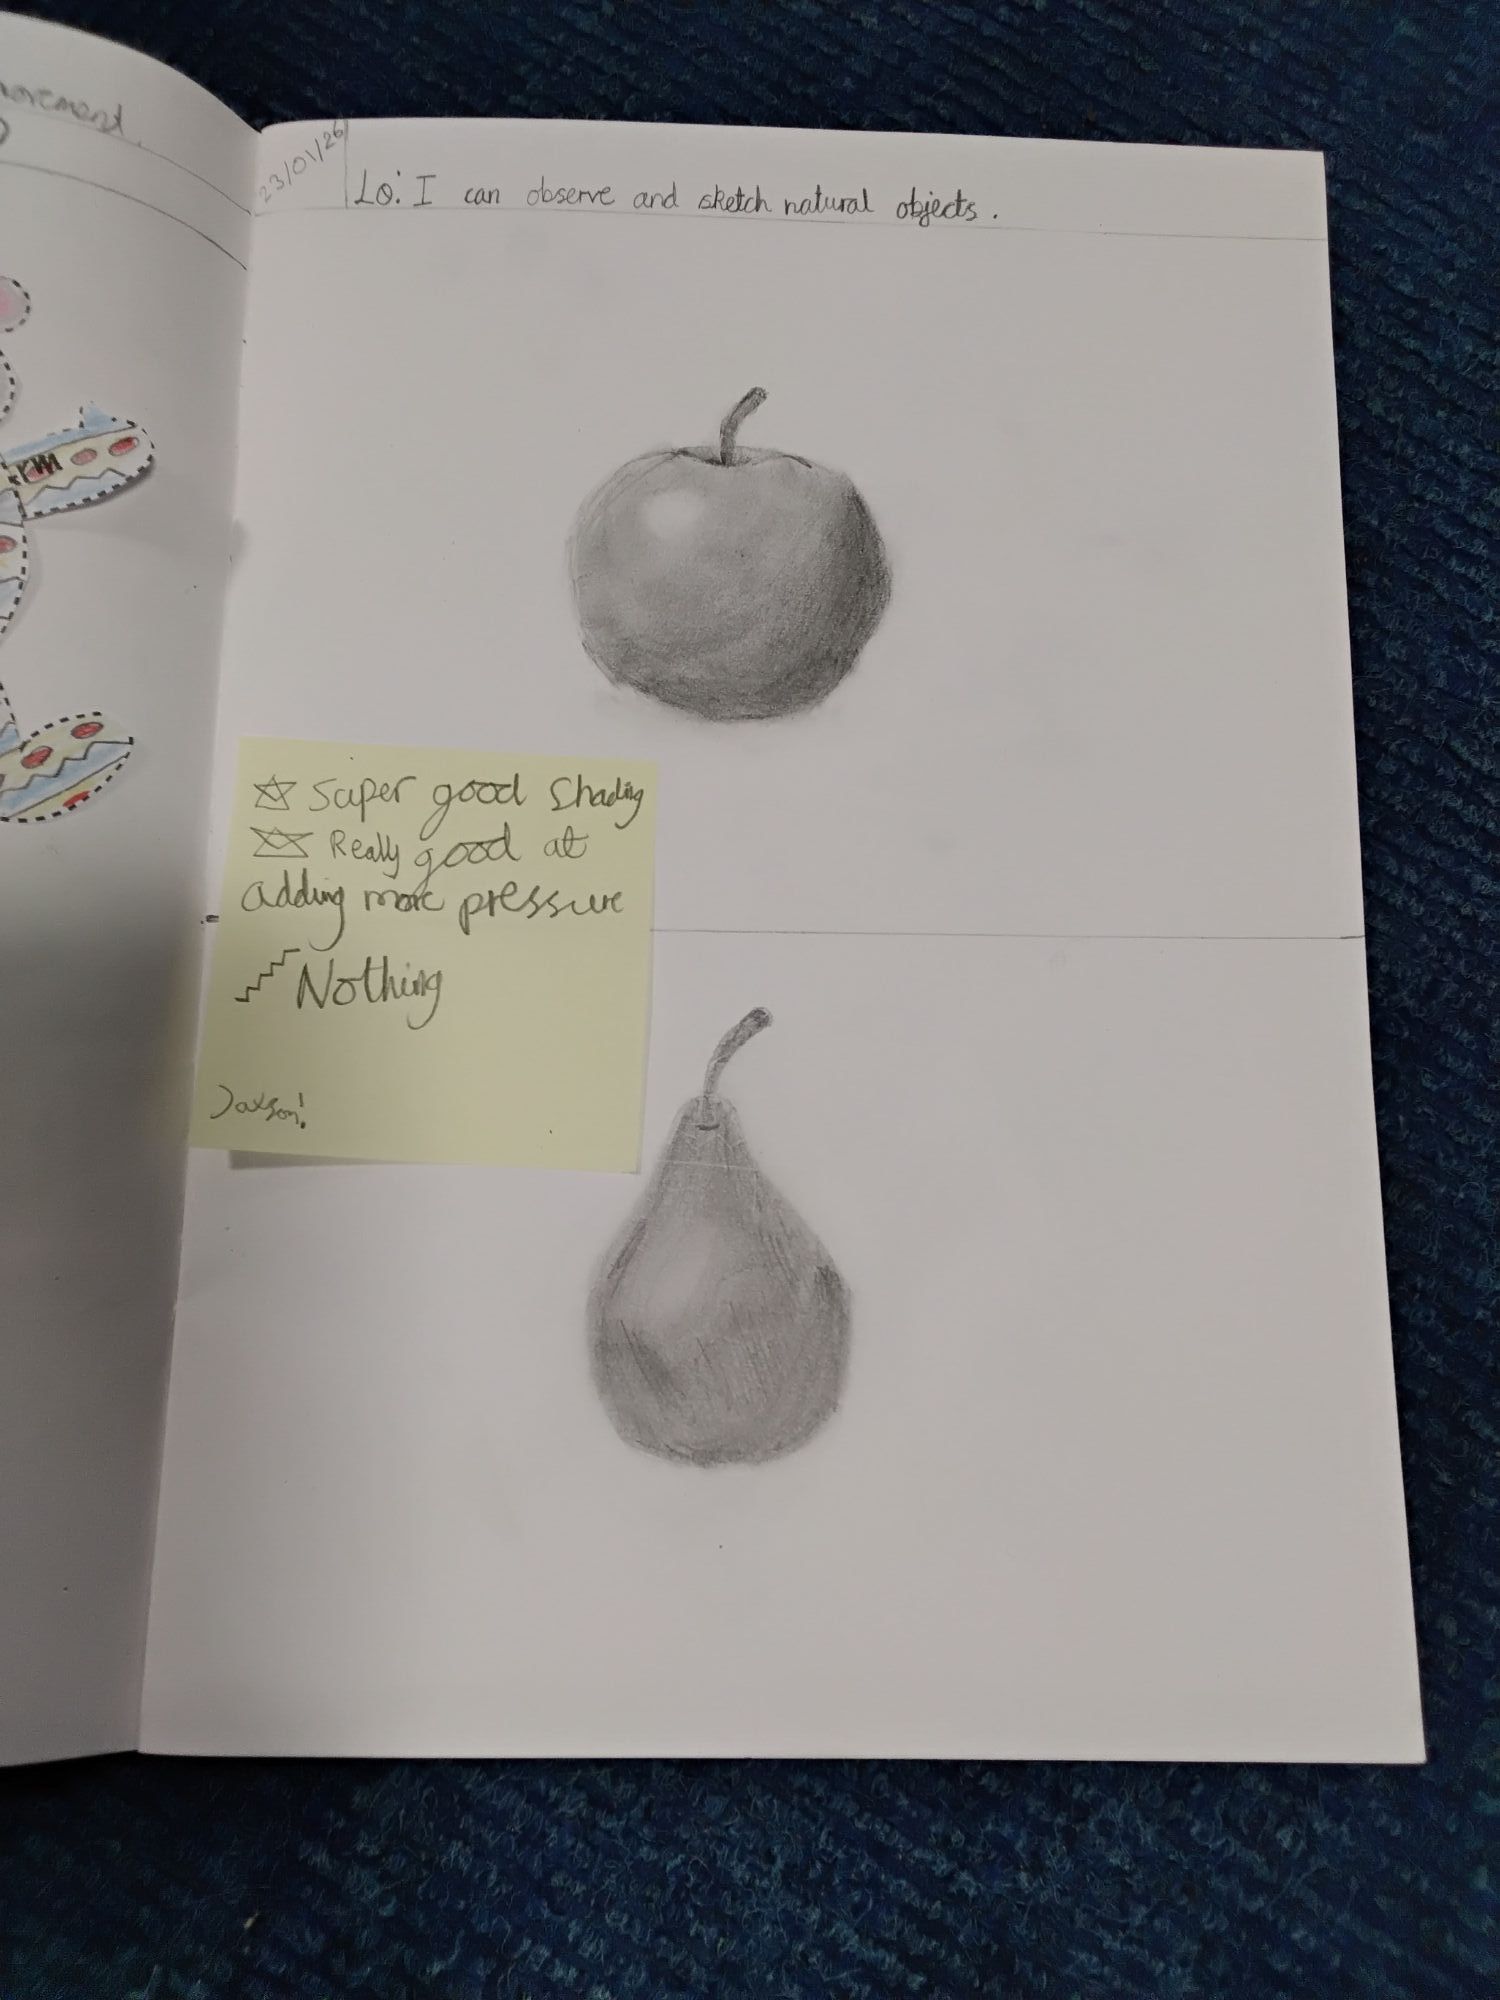 movement
23/01/26
LO: I can observe and sketch natural objects.
Super good shading
Really good at
adding more pressure
Nothing
Jaxson!